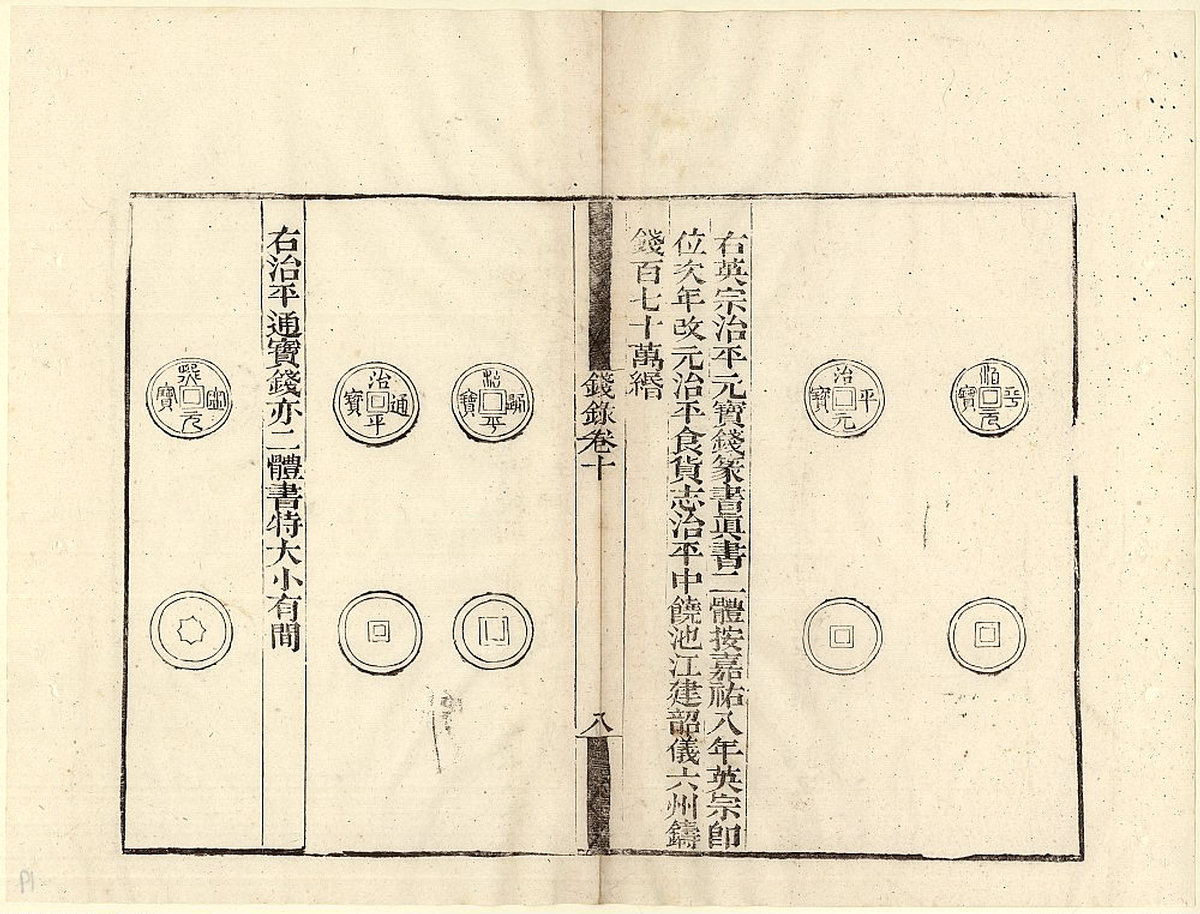 治平元寶
治平元寶
右英宗治平元寶錢篆書眞書二體按嘉祐八年英宗卽
位次年改元治平食貨志治平中饒池江建韶儀六州鑄
錢百七十萬緡
錢錄卷十
八
治平通寶
治平通寶
右治平通寶錢亦二體書特大小有間
熙寧元寶